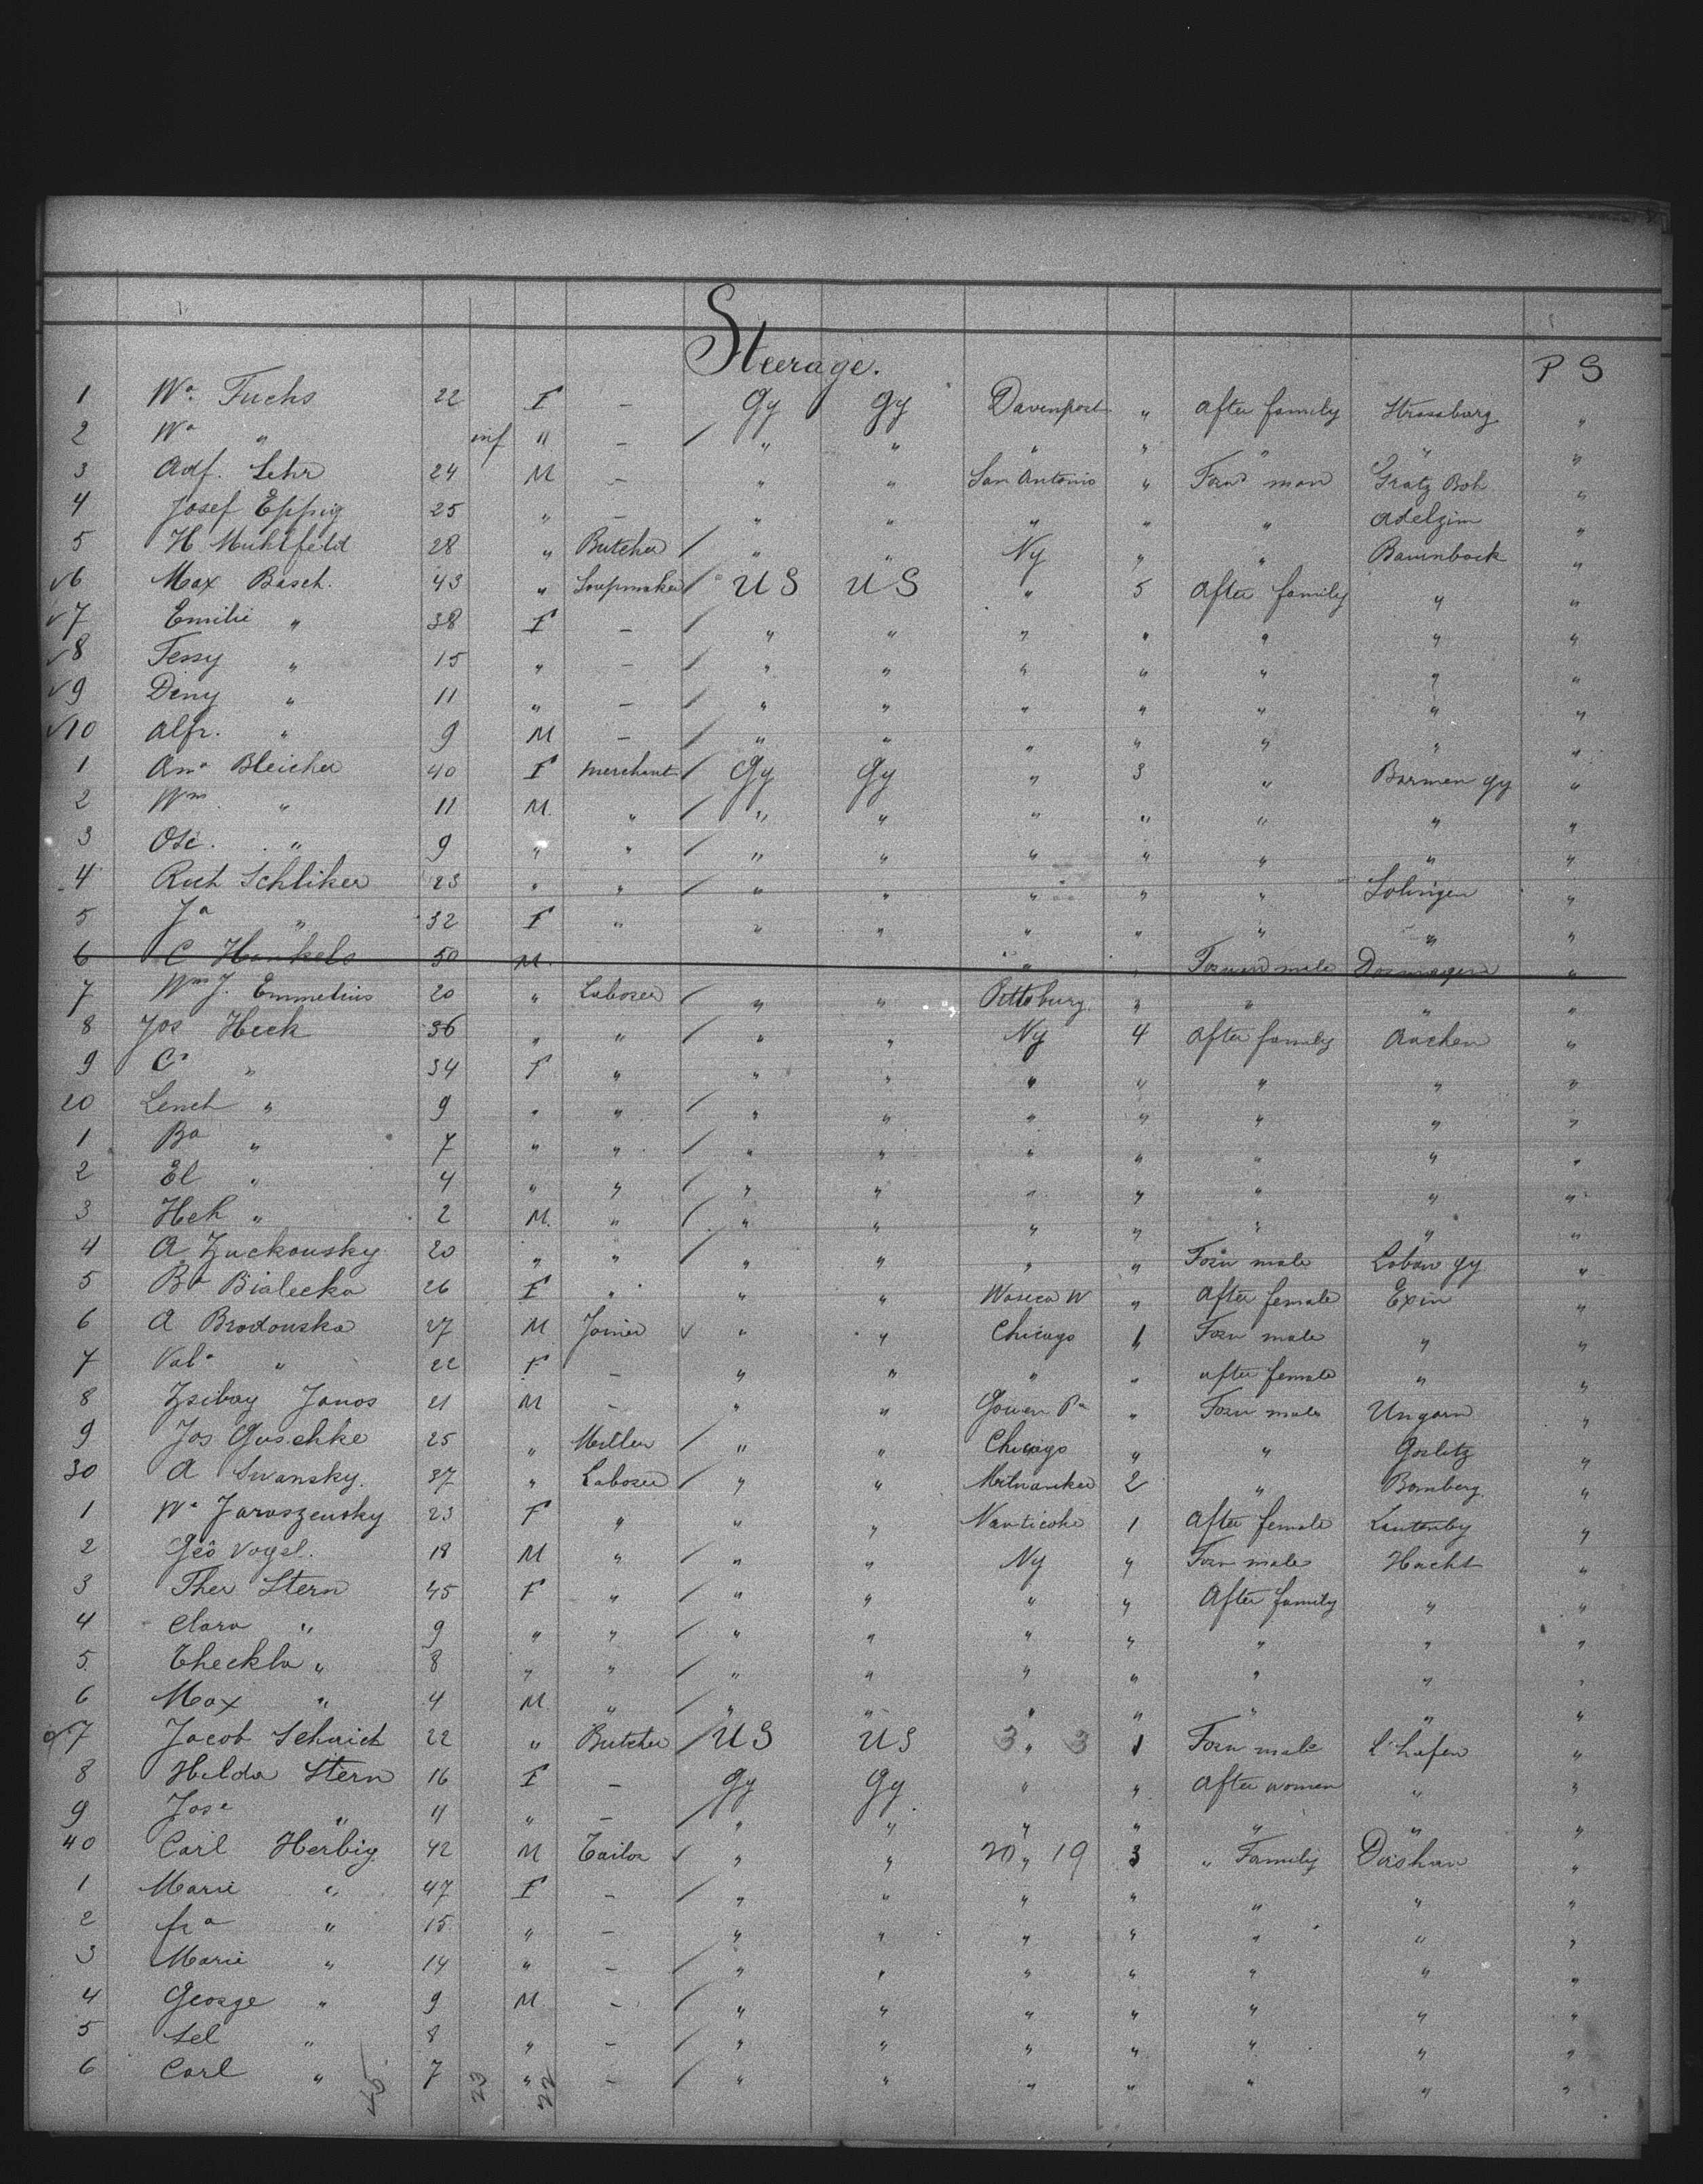 Steerage.
P S
1 Wa. Fuchs 22 F — Gy Gy Davenport " After family Strassburg "
2 Wa " inf " — / " " " " " " "
3 Adf. Lehr 24 M — " " San Antonio " Forwd man Gratz Boh "
4 Josef Eppig 25 " — " " " " " Adelzim "
5 H Muhlfeld 28 " Butcher / " " Ny " " "
√6 Max Basch. 43 " Soapmaker / U S U S " 5 After family " "
√7 Emilie " 38 F — / " " " " " " "
√8 Jenny " 15 " — / " " " " " " "
√9 Deny " 11 " — / " " " " " " "
√10 Alfr. " 9 M — / " " " " " " "
1 Ana Bleicher 40 F Merchant / Gy Gy " 3 " Barmen Gy "
2 Wm. " 11 M. " / " " " " " " "
3 Osc. " 9 " " / " " " " " " "
4 Rich Schliker 23 " " / " " " " " Solingen "
5 Ja " 32 F " " " " " " " "
6 C Hankels 50 M. " " Forward male Dormagen "
7 Wm J. Emmelius 20 " Laborer / " " Pittsburg " " " "
8 Jos Heck 36 " " / " " Ny 4 After family Aachen "
9 Ca " 34 F " " " " " " " "
20 Lench " 9 " " / " " " " " " "
1 Ba " 7 " " / " " " " " " "
2 El " 4 " " / " " " " " " "
3 Hch " 2 M. " / " " " " " " "
4 A Zuckousky 20 " " / " " " " Forw male Lobau Gy "
5 Ba Bialecka 26 F " " " Waseca W " After female Exin "
6 A Brodouska 27 M Joiner √ " " Chicago 1 Forw male " "
7 Vala " 22 F — " " " " after female " "
8 Zsibay Janos 21 M — " " Gowen Pa " Forw male Ungarn "
9 Jos Guschke 25 " Miller / " " Chicago " " Gorlitz "
30 A Swansky. 37 " Laborer / " " Milwaukee 2 " Bomberg. "
1 Wa Jaroszeusky 23 F " " " Nanticoke 1 After female "
2 Geo Vogel. 18 M " / " " Ny " Forw male Hacht "
3 Ther Stern 45 F " / " " " " After family " "
4 Clara " 9 " " / " " " " " " "
5. Theckla " 8 " " / " " " " " " "
6 Max " 4 M " / " " " " " " "
√7 Jacob Schaich 22 " Butcher / U S U S 3 " 3 1 Forw male L'hafen "
8 Hilda Stern 16 F — Gy Gy " " After women " "
9 Jose " 11 " — / " " " " " " "
40 Carl Herbig 42 M Tailor √ " " 20 " 19 3 " Family "
1 Marie " 47 F — / " " " " " " "
2 fra " 15 " — " " " " " " "
3 Marie " 14 " — / " " " " " " "
4 George " 9 M — / " " " " " " "
5 Sel " 8 " — / " " " " " " "
6 Carl " 7 " — / " " " " " " "
45. 23 22